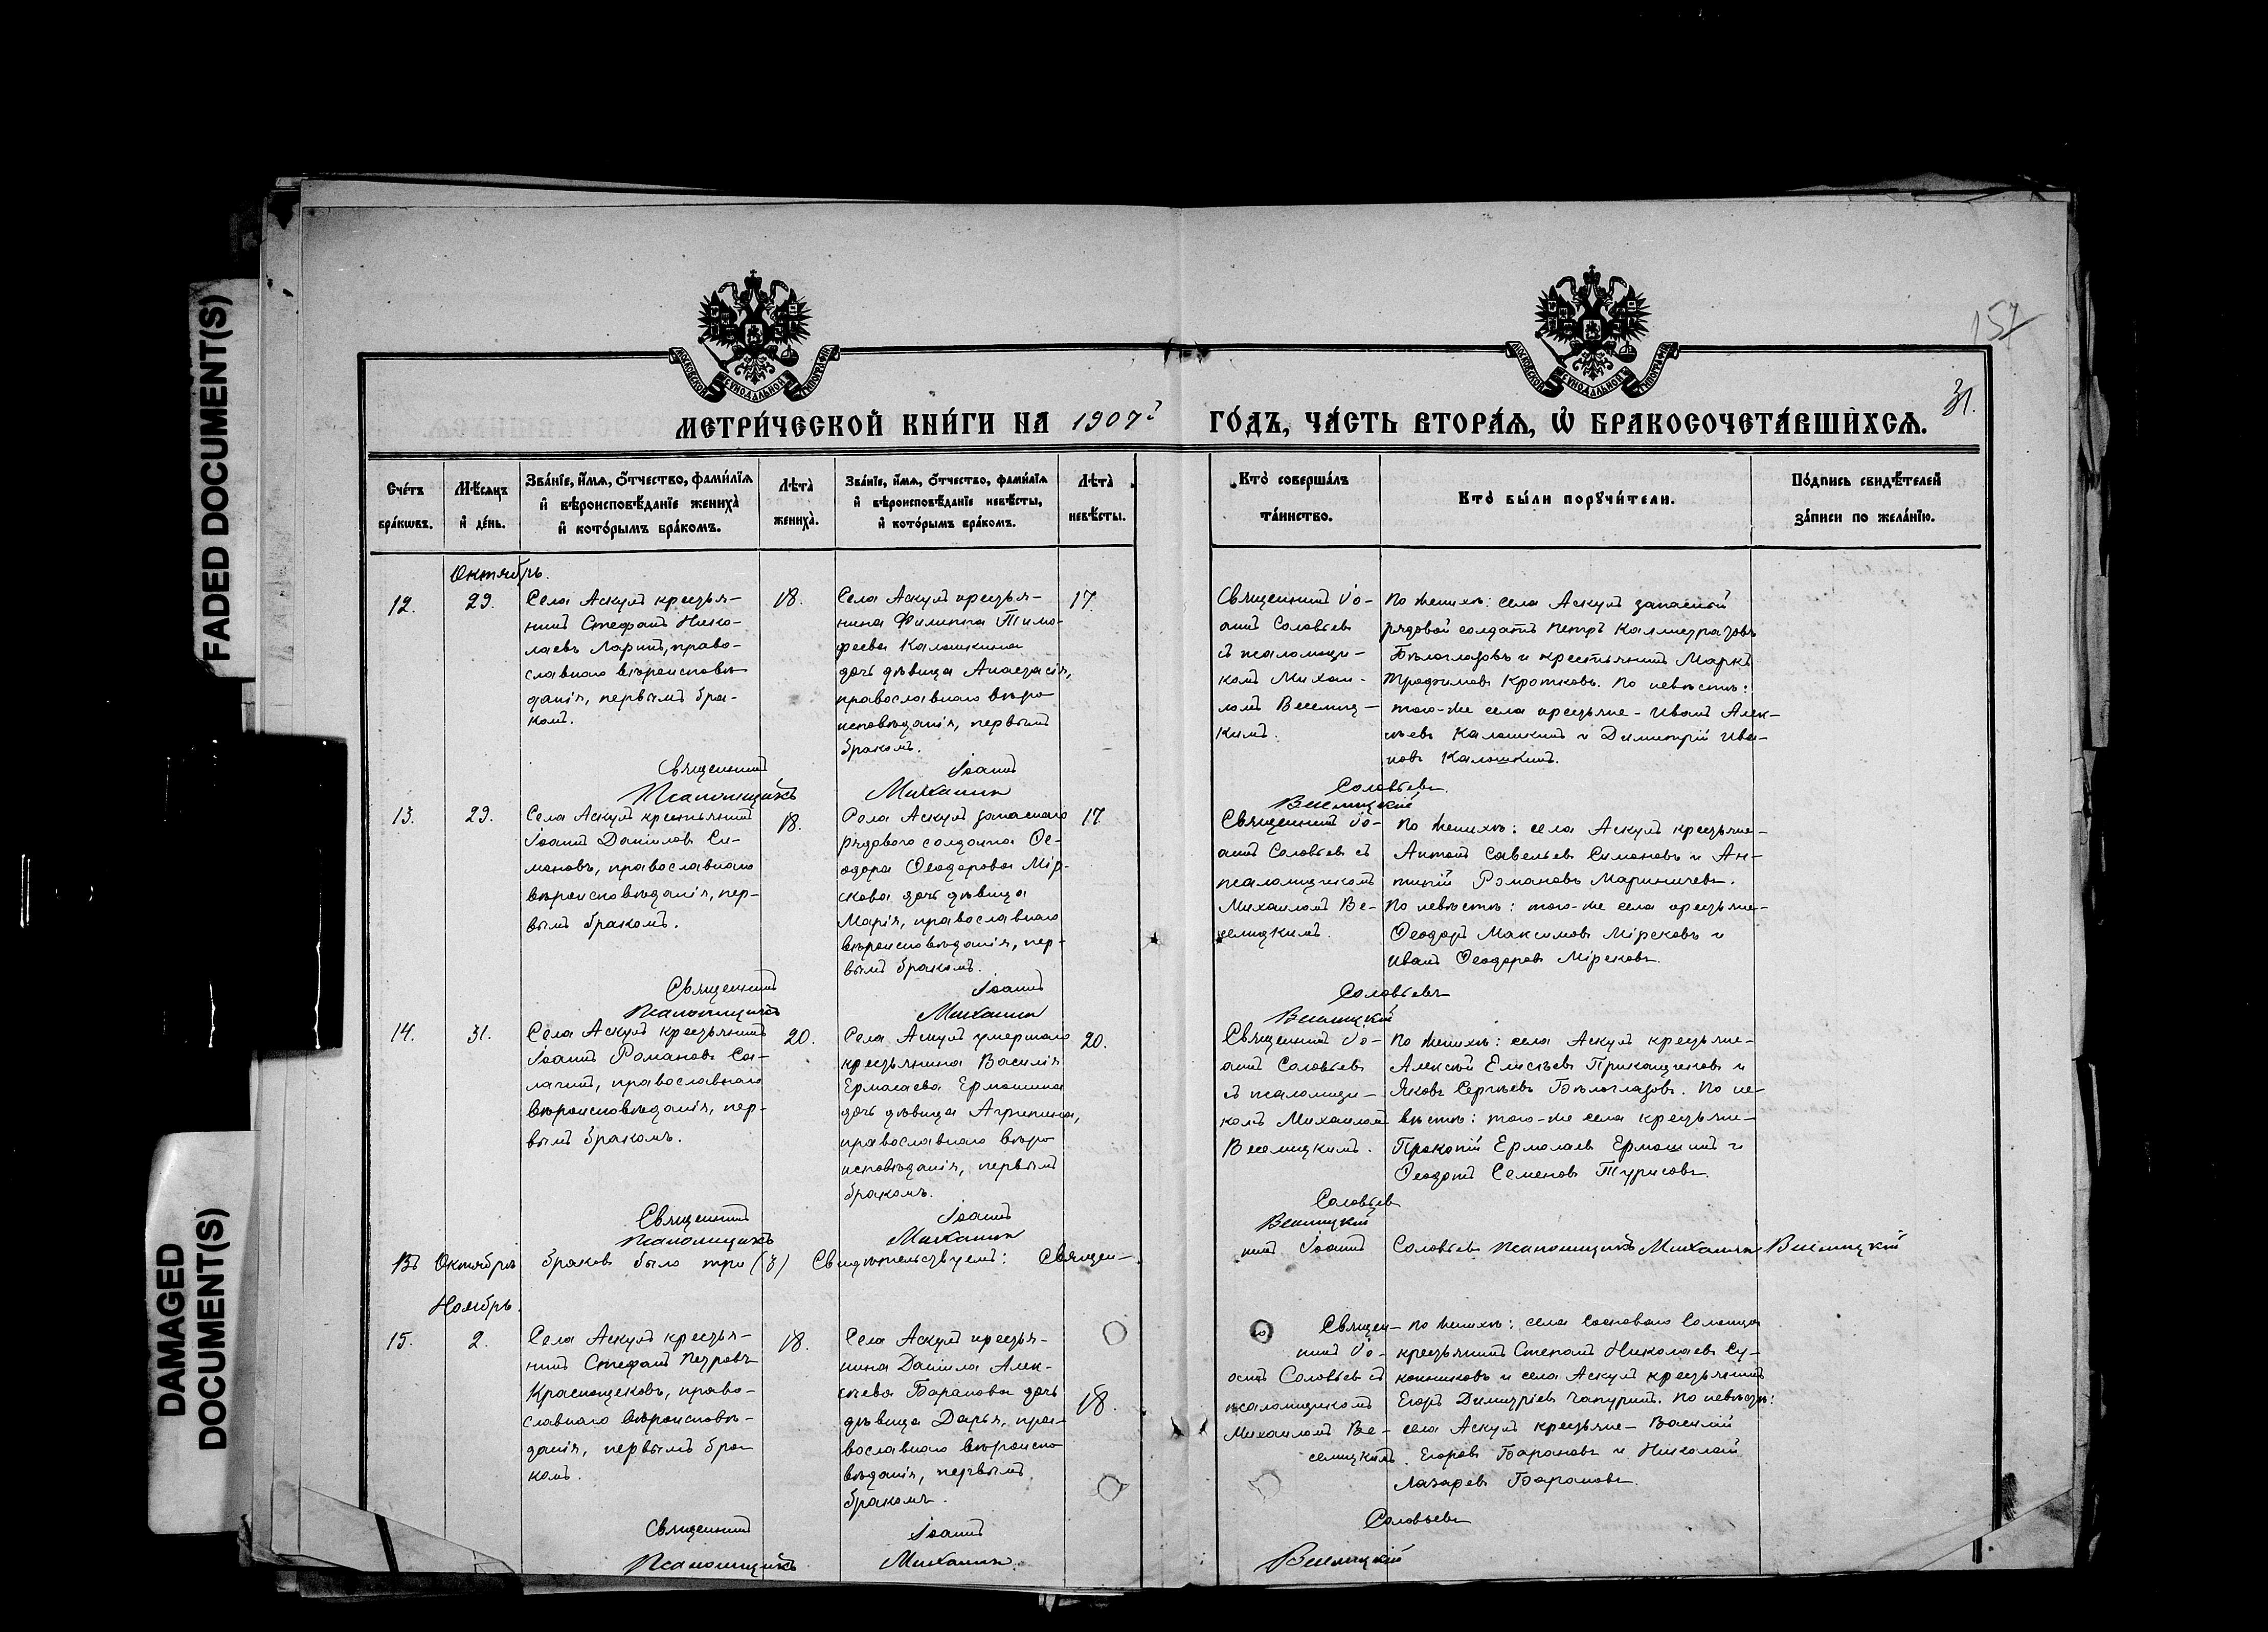 FADED DOCUMENT(S)
DAMAGED
DOCUMENT(S)
МОСКОВСКОЙ СѴНОДАЛЬНОЙ ТИПОГРАФІИ
МОСКОВСКОЙ СѴНОДАЛЬНОЙ ТИПОГРАФІИ
157
31.
МЕТРИ́ЧЕСКОЙ КНИ́ГИ НА 1907й ГО́ДЪ, ЧА́СТЬ ВТОРА́Ѧ, Ѽ БРАКОСОЧЕТА́ВШИХСѦ.
Сче́тъ
бра́кѡвъ.
Мѣ́сѧцъ
и҆ де́нь.
Зва́нїе, и҆́мѧ, о҆́тчество, фами́лїѧ
и҆ вѣроисповѣ́данїе жениха̀
и҆ кото́рымъ бра́комъ.
Лѣ́та
жениха̀.
Зва́нїе, и҆́мѧ, о҆́тчество, фами́лїѧ
и҆ вѣроисповѣ́данїе невѣ́сты,
и҆ кото́рымъ бра́комъ.
Лѣ́та
невѣ́сты.
Кто̀ соверша́лъ
та́инство.
Кто̀ бы́ли порꙋчи́тели.
По́дпись свидѣ́телей
за́писи по жела́нїю.
Октябрь.
12.
29.
Села Аскулъ крестья-
нинъ Стефанъ Нико-
лаевъ Ларинъ, право-
славнаго вѣроисповѣ-
данія, первымъ бра-
комъ.
18.
Села Аскулъ крестья-
нина Филиппа Тимо-
феева Калашкина
дочь дѣвица Анастасія,
православнаго вѣро-
исповѣданія, первымъ
бракомъ.
17.
Священникъ Іо-
аннъ Соловьевъ
съ псаломщи-
комъ Михаи-
ломъ Веселиц-
кимъ.
По женихѣ: села Аскулъ запасный
рядовой солдатъ Петръ Каллистратовъ
Бѣлоглазовъ и крестьянинъ Маркъ
Трофимовъ Кротковъ. По невѣстѣ:
того-же села крестьяне - Иванъ Алек-
сѣевъ Калашкинъ и Димитрій Ива-
новъ Калашкинъ.
Священникъ Іоаннъ Соловьевъ.
Псаломщикъ Михаилъ Веселицкій
13.
29.
Села Аскулъ крестьянинъ
Іоаннъ Даниловъ Си-
моновъ, православнаго
вѣроисповѣданія, пер-
вымъ бракомъ.
18.
Села Аскулъ запаснаго
рядового солдата Ѳе-
одора Ѳеодорова Мір-
скова дочь дѣвица
Марія, православнаго
вѣроисповѣданія, пер-
вымъ бракомъ.
17
Священникъ Іо-
аннъ Соловьевъ съ
псаломщикомъ
Михаиломъ Ве-
селицкимъ.
По женихѣ: села Аскулъ крестьяне-
Антонъ Савельевъ Симоновъ и Ан-
тоній Романовъ Мариничевъ.
По невѣстѣ: того-же села крестьяне-
Ѳеодоръ Максимовъ Мірсковъ и
Иванъ Ѳеодоровъ Мірсковъ.
Священникъ Іоаннъ Соловьевъ
Псаломщикъ Михаилъ Веселицкій
14.
31.
Села Аскулъ крестьянинъ
Іоаннъ Романовъ Са-
лагинъ, православнаго
вѣроисповѣданія, пер-
вымъ бракомъ.
20.
Села Аскулъ умершаго
крестьянина Василія
Ермолаева Ермошина
дочь дѣвица Агрипина,
православнаго вѣро-
исповѣданія, первымъ
бракомъ.
20.
Священникъ Іо-
аннъ Соловьевъ
съ псаломщи-
комъ Михаиломъ
Веселицкимъ.
По женихѣ: села Аскулъ крестьяне-
Алексѣй Елисѣевъ Прикащиковъ и
Яковъ Сергѣевъ Бѣлоглазовъ. По не-
вѣстѣ: того-же села крестьяне-
Прокопій Ермолаевъ Ермошинъ и
Ѳеодотъ Семеновъ Турисовъ.
Священникъ Іоаннъ Соловьевъ
Псаломщикъ Михаилъ Веселицкій
Въ Октябрѣ браковъ было три (3) Свидѣтельствуемъ: Священ-
никъ Іоаннъ Соловьевъ Псаломщикъ Михаилъ Веселицкій
Ноябрь.
15.
2.
Села Аскулъ крестья-
нинъ Стефанъ Петровъ
Краснощековъ, право-
славнаго вѣроисповѣ-
данія, первымъ бра-
комъ.
18.
Села Аскулъ крестья-
нина Даніила Алек-
сѣева Баранова дочь
дѣвица Дарья, пра-
вославнаго вѣроиспо-
вѣданія, первымъ
бракомъ.
18.
Священ-
никъ Іо-
аннъ Соловьевъ съ
псаломщикомъ
Михаиломъ Ве-
селицкимъ.
По женихѣ: села Сосноваго Солонца
крестьянинъ Степанъ Николаевъ Су-
конниковъ и села Аскулъ крестьянинъ
Егоръ Димитріевъ Чапуринъ. По невѣстѣ:
села Аскулъ крестьяне- Василій
Егоровъ Барановъ и Николай
Лазаревъ Барановъ.
Священникъ Іоаннъ Соловьевъ
Псаломщикъ Михаилъ Веселицкій